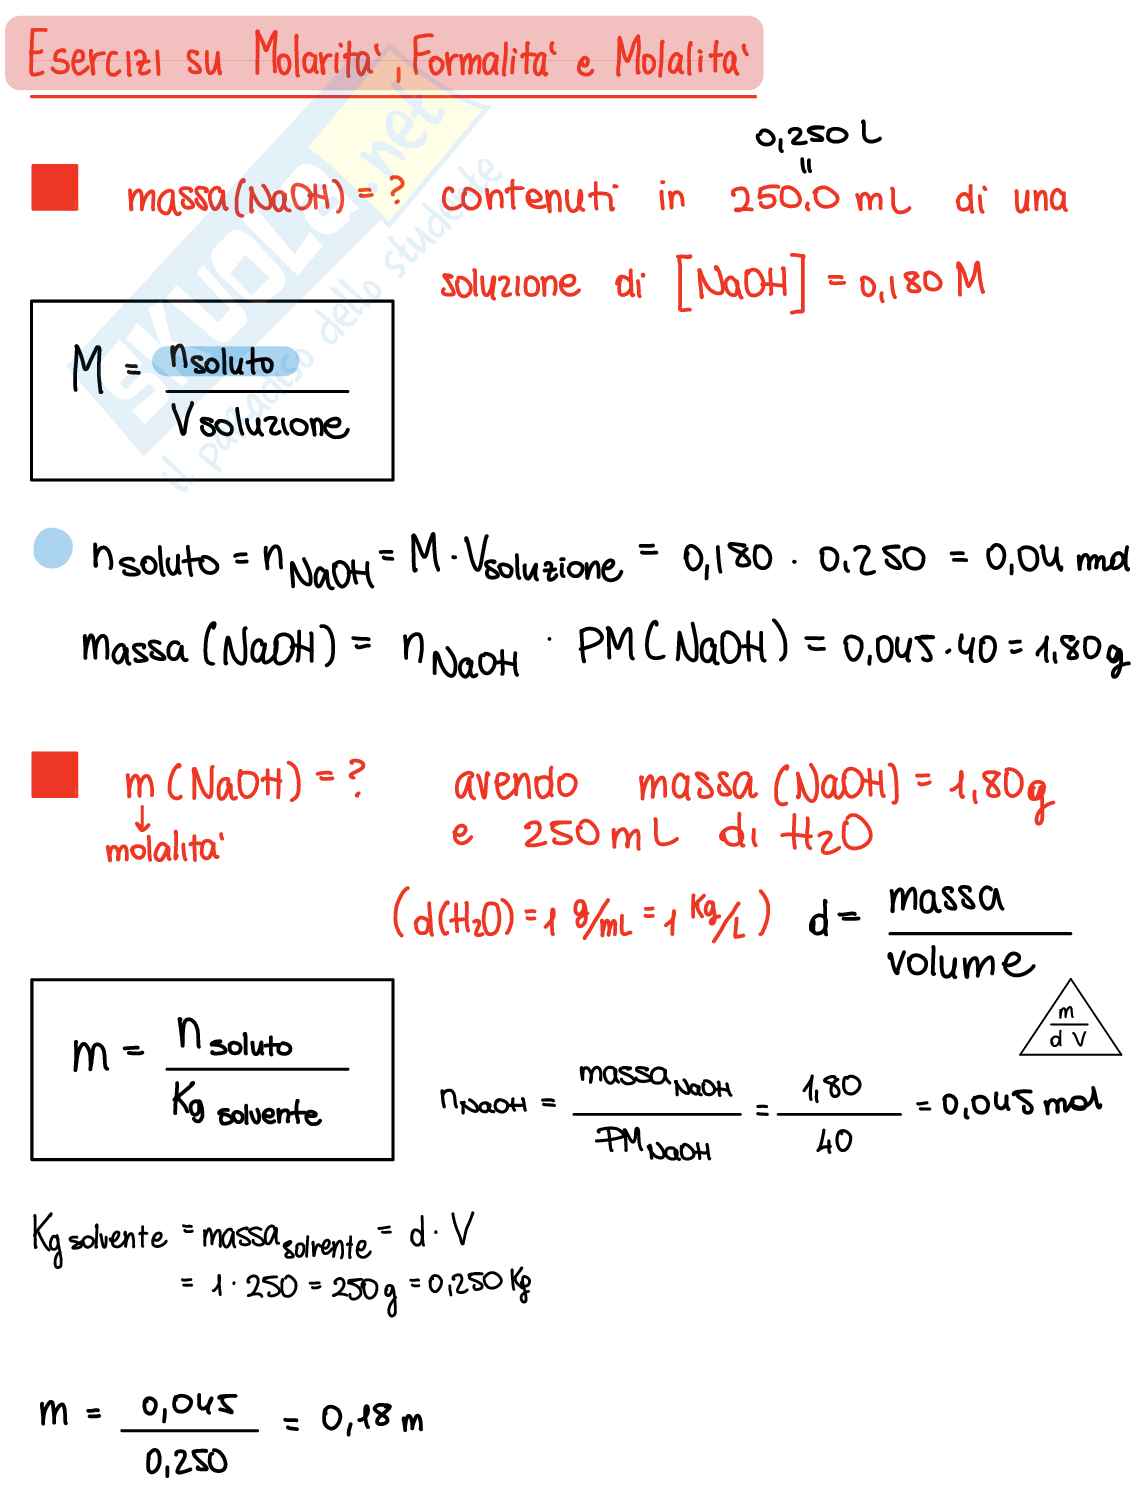 Esercizi su Molarita', Formalita' e Molalita'
0,250 L
=
massa (NaOH) = ? contenuti in 250.0 mL di una
soluzione di [NaOH] = 0,180 M
M = nsoluto / Vsoluzione
nsoluto = nNaOH = M · Vsoluzione = 0,180 · 0,250 = 0,04 mol
massa (NaOH) = nNaOH · PM (NaOH) = 0,045 · 40 = 1,80 g
m (NaOH) = ? avendo massa (NaOH) = 1,80 g
↓
molalita' e 250 mL di H2O
(d(H2O) = 1 g/mL = 1 Kg/L) d = massa / volume
m
d V
m = nsoluto / Kg solvente
nNaOH = massaNaOH / PMNaOH = 1,80 / 40 = 0,045 mol
Kg solvente = massa solvente = d · V
= 1 · 250 = 250 g = 0,250 Kg
m = 0,045 / 0,250 = 0,18 m
SKUOLA.net
il paradiso dello studente